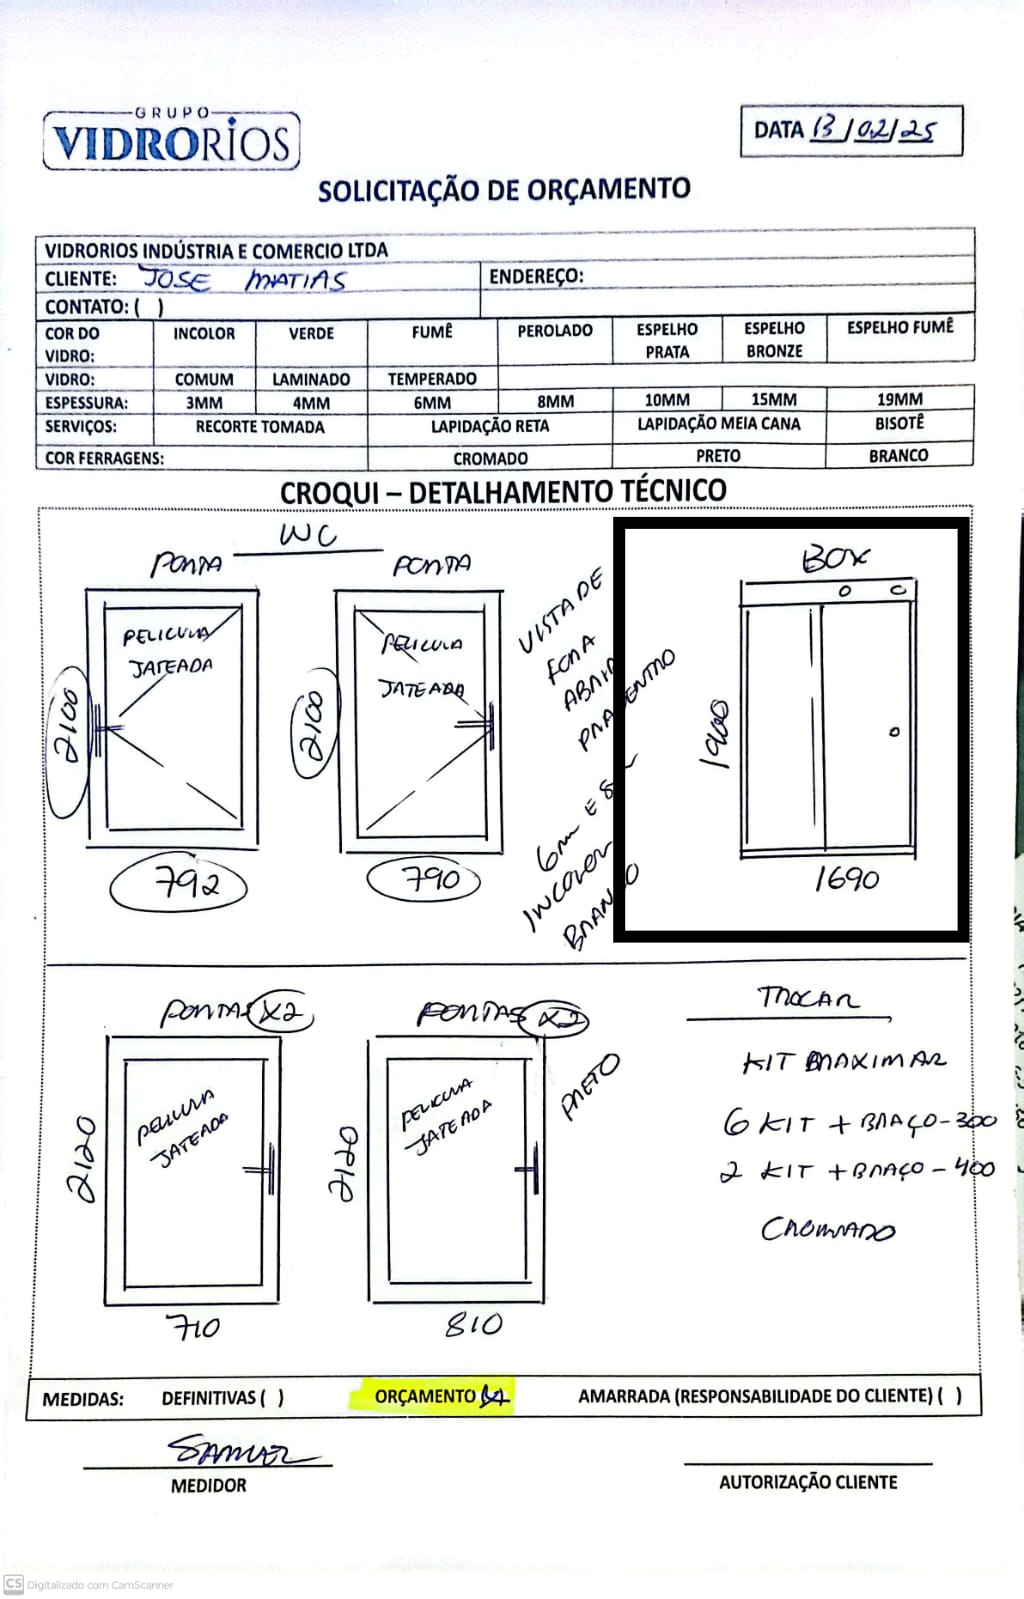 GRUPO
VIDRORIOS
DATA 13/02/25
SOLICITAÇÃO DE ORÇAMENTO
VIDRORIOS INDÚSTRIA E COMERCIO LTDA
CLIENTE: JOSE MATIAS ENDEREÇO:
CONTATO: ( )
COR DO VIDRO: INCOLOR VERDE FUMÊ PEROLADO ESPELHO PRATA ESPELHO BRONZE ESPELHO FUMÊ
VIDRO: COMUM LAMINADO TEMPERADO
ESPESSURA: 3MM 4MM 6MM 8MM 10MM 15MM 19MM
SERVIÇOS: RECORTE TOMADA LAPIDAÇÃO RETA LAPIDAÇÃO MEIA CANA BISOTÊ
COR FERRAGENS: CROMADO PRETO BRANCO
CROQUI – DETALHAMENTO TÉCNICO
WC
PORTA
PELICULA
JATEADA
2100
792
PORTA
PELICULA
JATEADA
2100
790
VISTA DE
FORA
ABRIR
PRA DENTRO
6mm E 8
INCOLOR
BRANCO
BOX
1900
1690
PORTAS X2
PELICULA
JATEADA
2120
710
PORTAS X2
PELICULA
JATEADA
2120
810
PRETO
TROCAR
KIT MAXIMAR
6 KIT + BRAÇO-300
2 KIT + BRAÇO - 400
CROMADO
MEDIDAS: DEFINITIVAS ( ) ORÇAMENTO (X) AMARRADA (RESPONSABILIDADE DO CLIENTE) ( )
SAMUEL
MEDIDOR
AUTORIZAÇÃO CLIENTE
CS Digitalizado com CamScanner